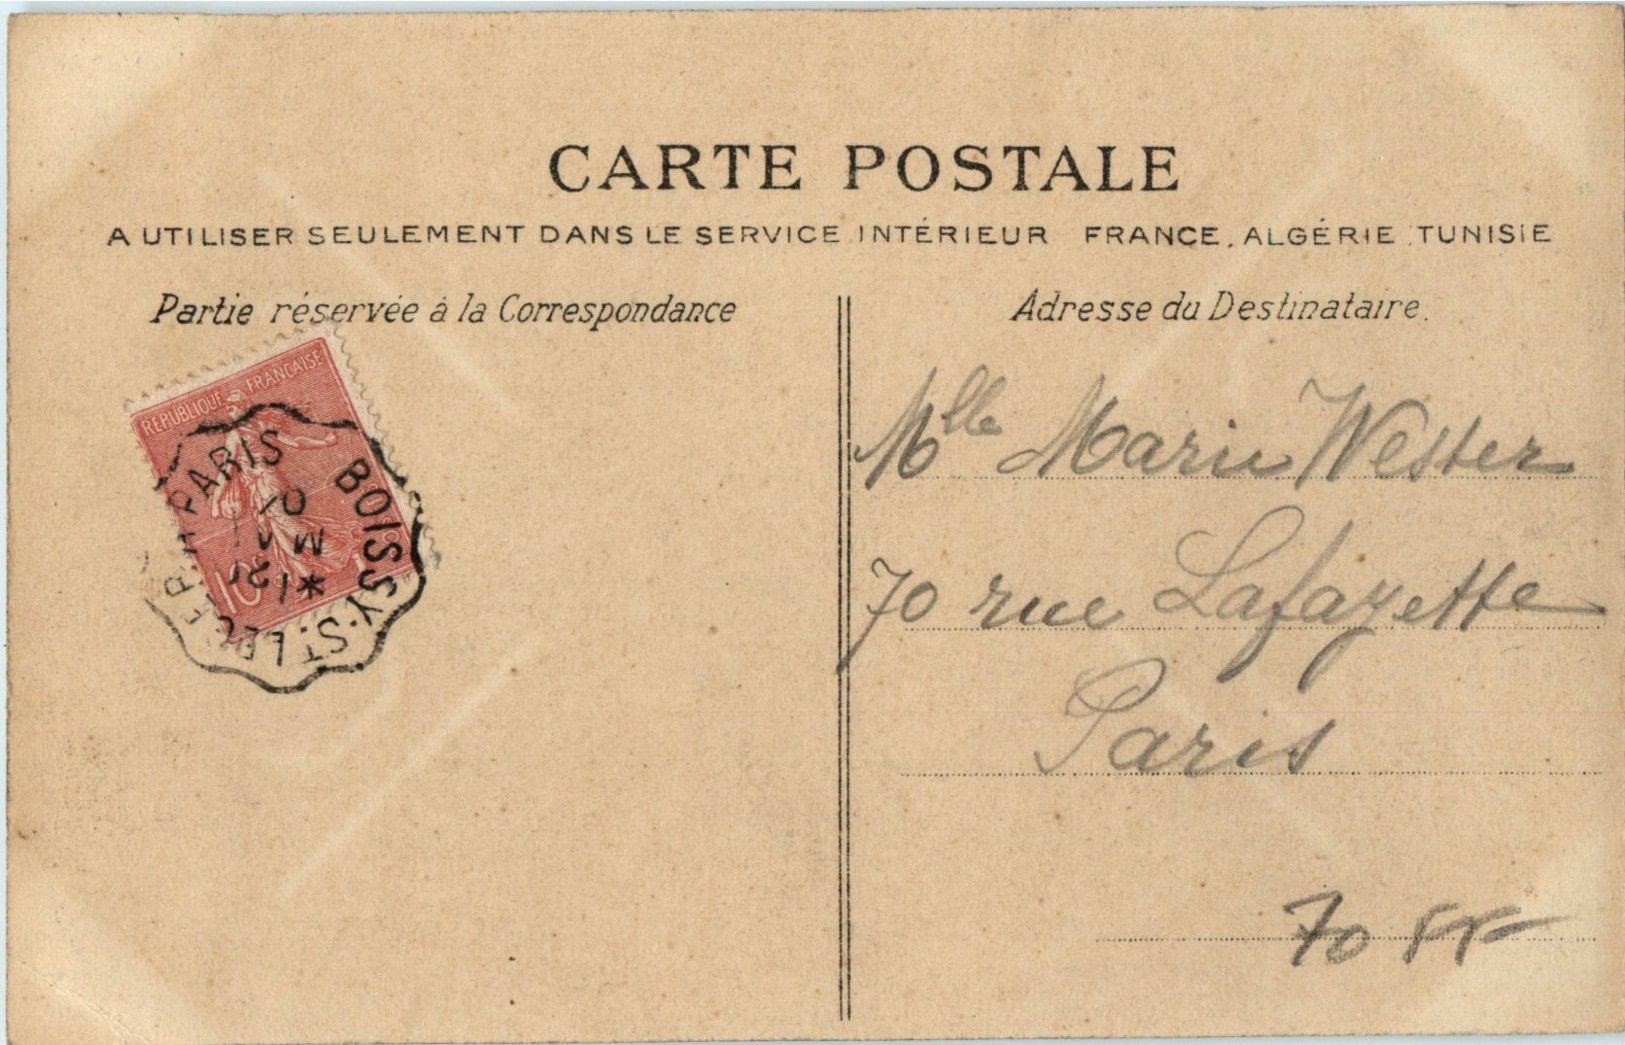 CARTE POSTALE
A UTILISER SEULEMENT DANS LE SERVICE INTÉRIEUR FRANCE, ALGÉRIE, TUNISIE
Partie réservée à la Correspondance
Adresse du Destinataire.
RÉPUBLIQUE FRANÇAISE
10
BOISSY-ST-LEGER A PARIS
MAI
Mlle Marie Wester
70 rue Lafayette
Paris
70